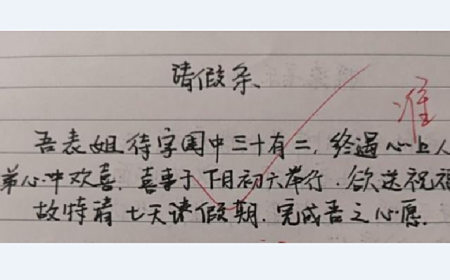 请假条
准
吾表姐待字闺中三十有二,终遇心上人
弟心中欢喜.喜事于下月初六举行.欲送祝福
故特请七天诗假期.完成吾之心愿.